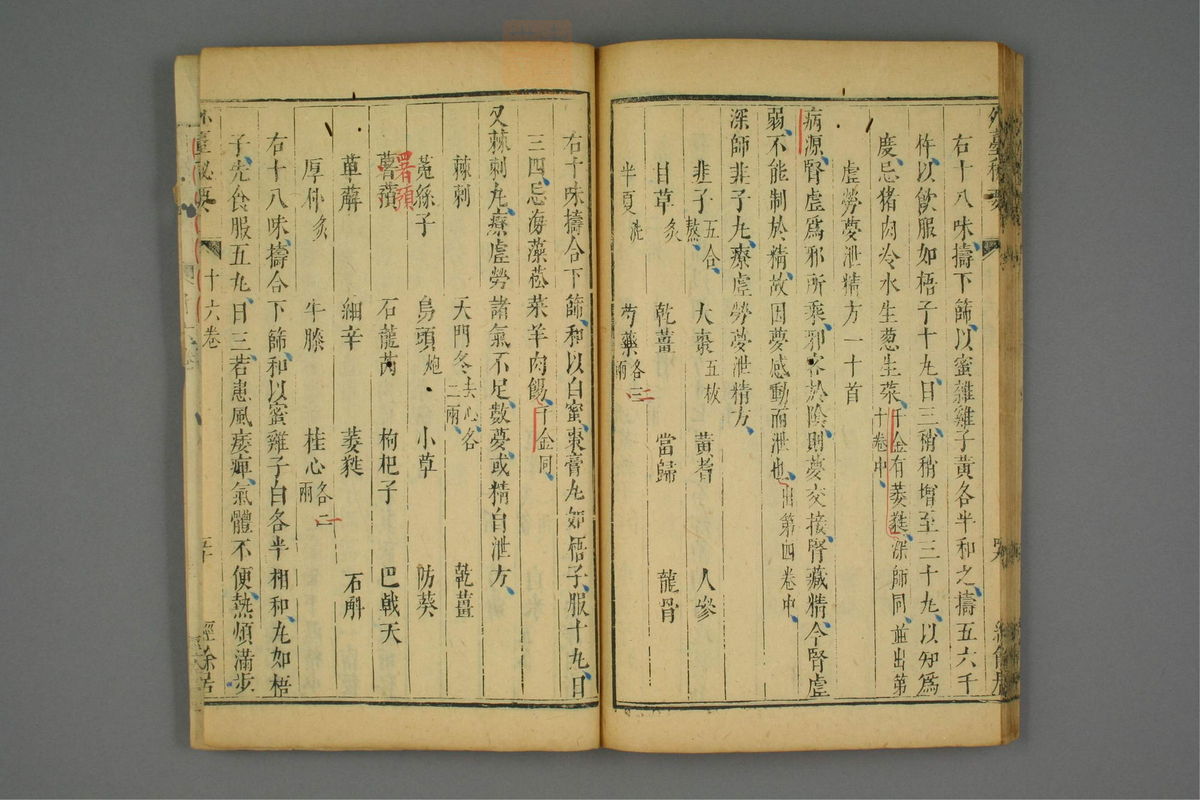 右十八味擣下篩以蜜雜雞子黃各半和之擣五六千
杵以飲服如梧子十丸日三稍稍增至三十丸以知爲
度忌猪肉冷水生葱生菜千金有萎蕤深師同並出第十卷中
虛勞夢泄精方一十首
病源腎虛爲邪所乘邪客於陰則夢交接腎藏精今腎虛
弱不能制於精故因夢感動而泄也出第四卷中
深師韭子丸療虛勞夢泄精方
韭子五合熬 大棗五枚 黃耆 人參
甘草炙 乾薑 當歸 龍骨
半夏洗 芍藥各三兩
右十味擣合下篩和以白蜜棗膏丸如梧子服十丸日
三四忌海藻菘菜羊肉餳千金同
又棘刺丸療虛勞諸氣不足數夢或精自泄方
棘刺 天門冬去心各二兩 乾薑
菟絲子 烏頭炮 小草 防葵
薯蕷 石龍芮 枸杞子 巴戟天
署預
萆薢 細辛 萎蕤 石斛
厚朴炙 牛膝 桂心各二兩
右十八味擣合下篩和以蜜雞子白各半相和丸如梧
子先食服五丸日三若患風痿痺氣體不便熱煩滿步
外臺秘要 十六卷 五十 經餘居